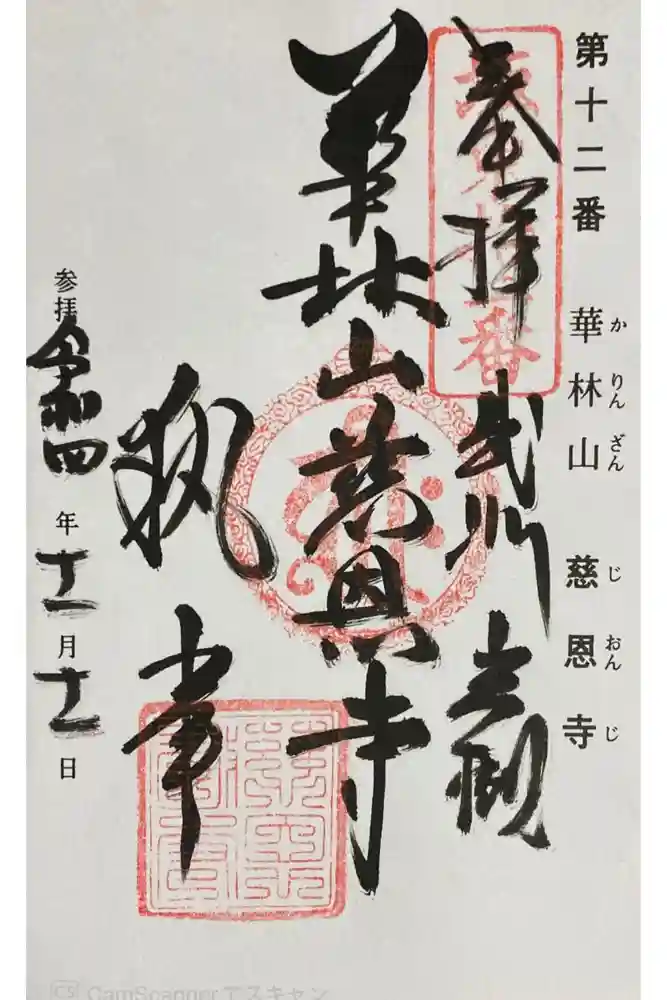 第十二番 華林山 慈恩寺
か りん ざん じ おん じ
奉拝 武州 岩槻
華林山慈恩寺
執事
参拝 令和四年十一月十一日
CS CamScannerでスキャン